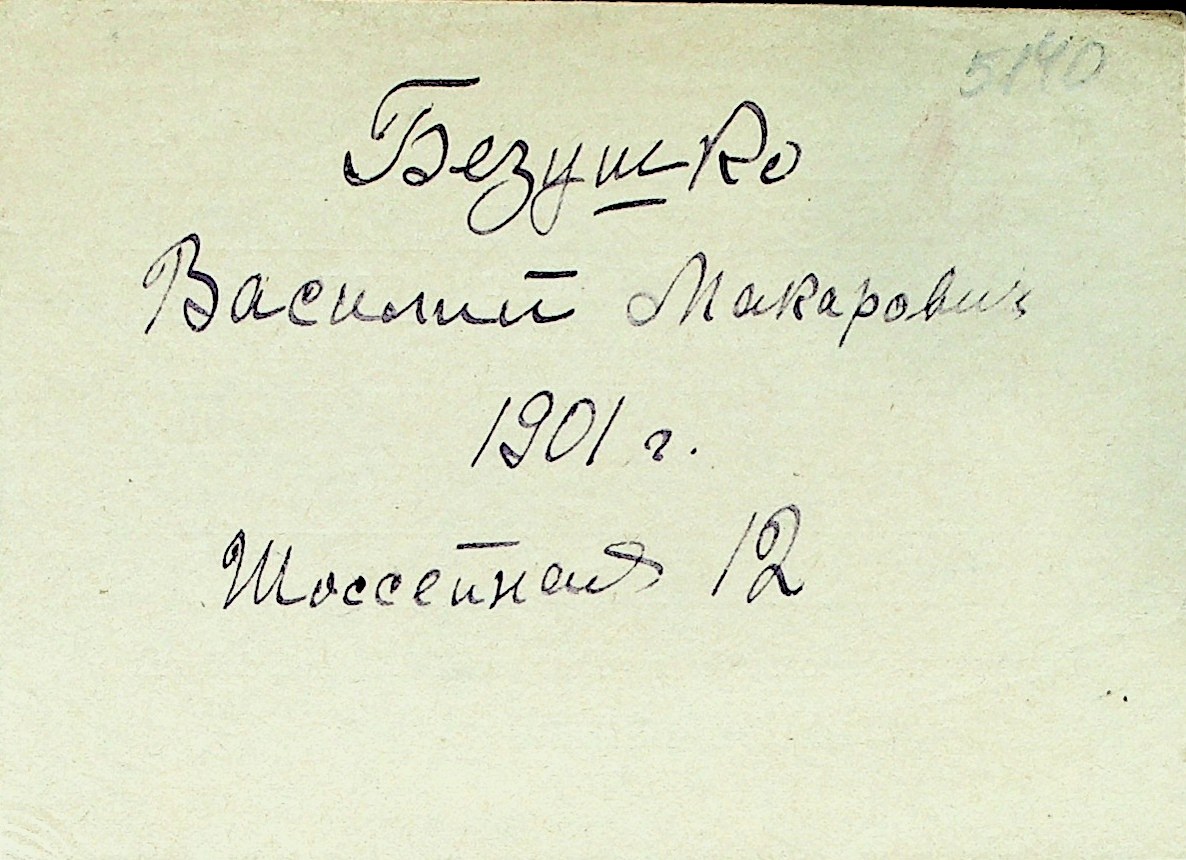 5140
Безушко
Василий Макарович
1901 г.
Шоссейная 12